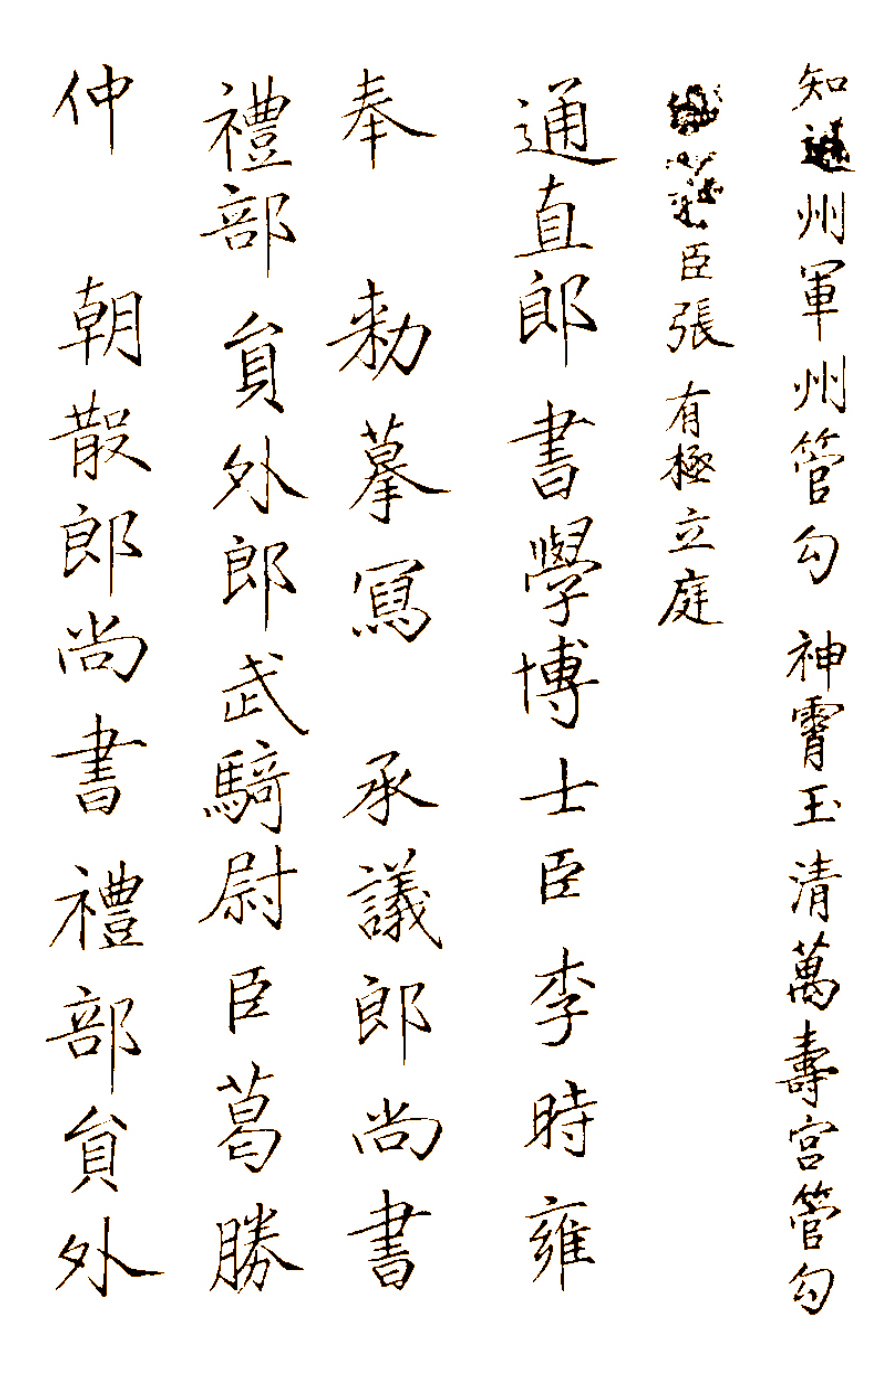 知州軍州管勾 神霄玉清萬壽宫管勾
臣張有極立庭
通直郎書學博士臣李時雍
奉 勅摹冩 承議郎尚書
禮部貟外郎武騎尉臣葛勝
仲 朝散郎尚書禮部貟外